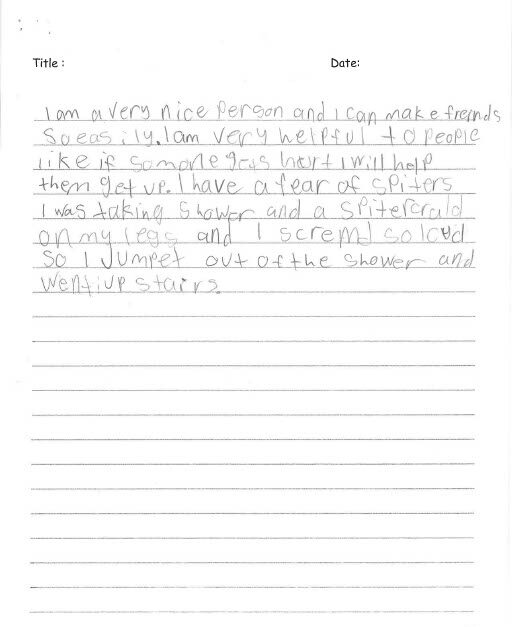 Title :
Date:
I am a very nice Person and I can make freinds
So eas ily. I am very helpful to people
like if somone gets hurt I will help
them get up. I have a fear of spiters
I was taking Shower and a spitercrald
on my legs and I scremd so loud
So I Jumpet out of the shower and
went up stairs.